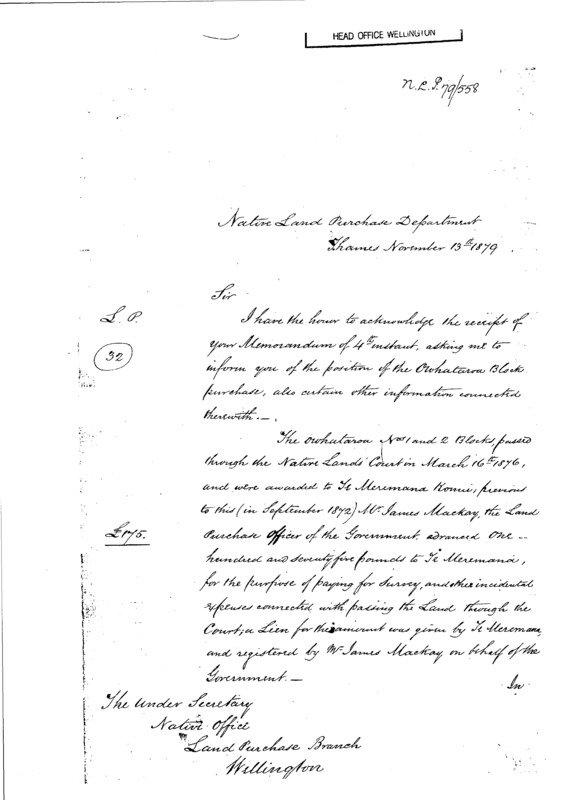 HEAD OFFICE WELLINGTON
N.L.P. 79/558
Native Land Purchase Department
Thames November 13th 1879
Sir
L. P.
I have the honor to acknowledge the receipt of
32
your Memorandum of 4th instant, asking me to
inform you of the position of the Owhataroa Block
purchase, also certain other information connected
therewith.—
The Owhataroa Nos 1 and 2 Blocks, passed
through the Native Lands Court in March 16th 1876,
and were awarded to Te Meremana Konui, previous
to this (in September 1872) Mr. James Mackay, the Land
£175.
Purchase Officer of the Government advanced One—
hundred and seventy five pounds to Te Meremana,
for the purpose of paying for Survey, and other incidental
expenses connected with passing the Land through the
Court; a Lien for this amount was given by Te Meremana,
and registered by Mr James Mackay, on behalf of the
Government.—
In
The Under Secretary
Native Office
Land Purchase Branch
Wellington